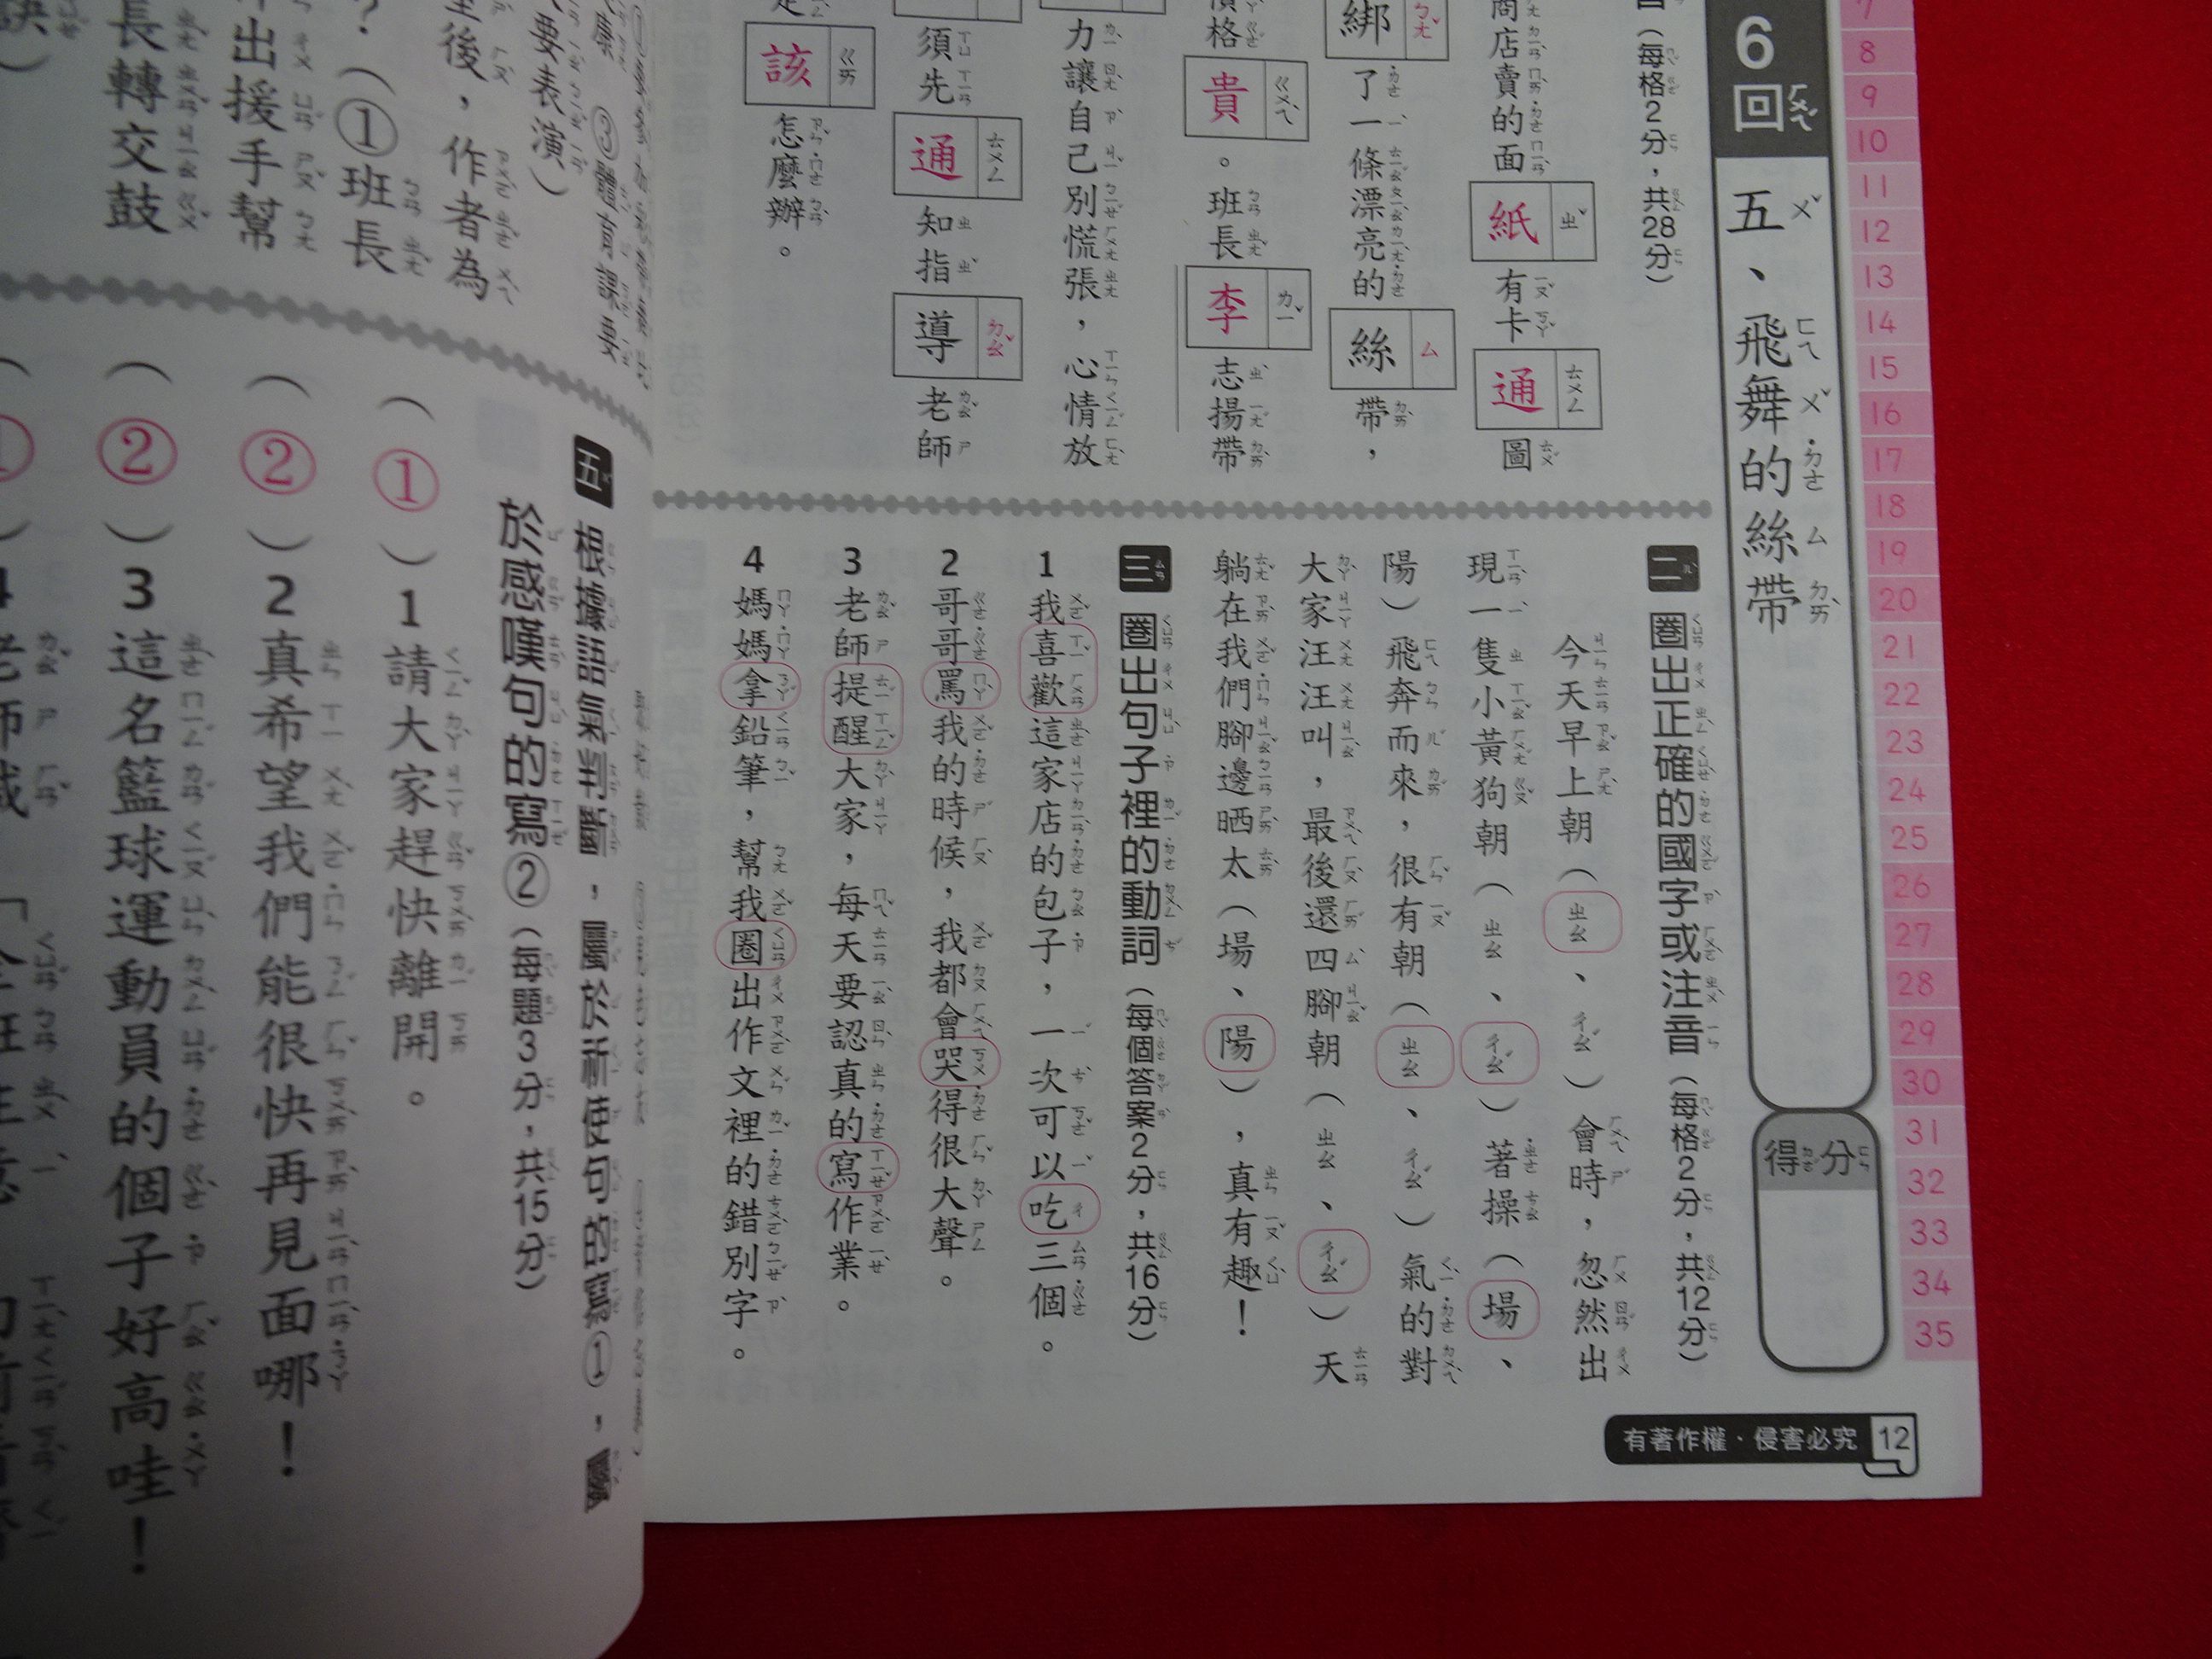 7
8
9
10
11
12
13
14
15
16
17
18
19
20
21
22
23
24
25
26
27
28
29
30
31
32
33
34
35
6回
五、飛舞的絲帶
得分
(每格2分,共28分)
商店賣的面紙有卡通圖
綁了一條漂亮的絲帶,
格貴。班長李志揚帶
力讓自己別慌張,心情放
須先通知指導老師
該怎麼辦。
二 圈出正確的國字或注音(每格2分,共12分)
今天早上朝(ㄓㄠ、ㄔㄠˊ)會時,忽然出
現一隻小黃狗朝(ㄓㄠ、ㄔㄠˊ)著操(場、
陽)飛奔而來,很有朝(ㄓㄠ、ㄔㄠˊ)氣的對
大家汪汪叫,最後還四腳朝(ㄓㄠ、ㄔㄠˊ)天
躺在我們腳邊晒太(場、陽),真有趣!
三 圈出句子裡的動詞(每個答案2分,共16分)
1 我喜歡這家店的包子,一次可以吃三個。
2 哥哥罵我的時候,我都會哭得很大聲。
3 老師提醒大家,每天要認真的寫作業。
4 媽媽拿鉛筆,幫我圈出作文裡的錯別字。
有著作權‧侵害必究 12
③體育課要
要表演)
後,作者為
?(①班長
出援手幫
長轉交鼓
五 根據語氣判斷,屬於祈使句的寫①,屬
於感嘆句的寫②(每題3分,共15分)
(①)1 請大家趕快離開。
(②)2 真希望我們能很快再見面哪!
(②)3 這名籃球運動員的個子好高哇!